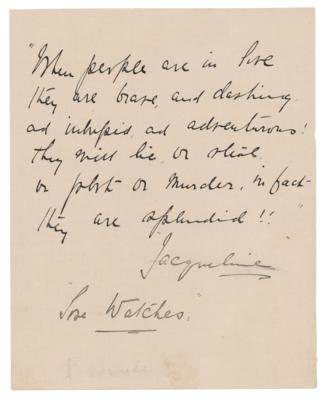 "When people are in love
they are brave, and dashing,
ad intrepid, ad adventurous!
they will lie, or steal,
or plot or murder, in fact
they are splendid!!"
"Jacqueline"
"Love Watches."